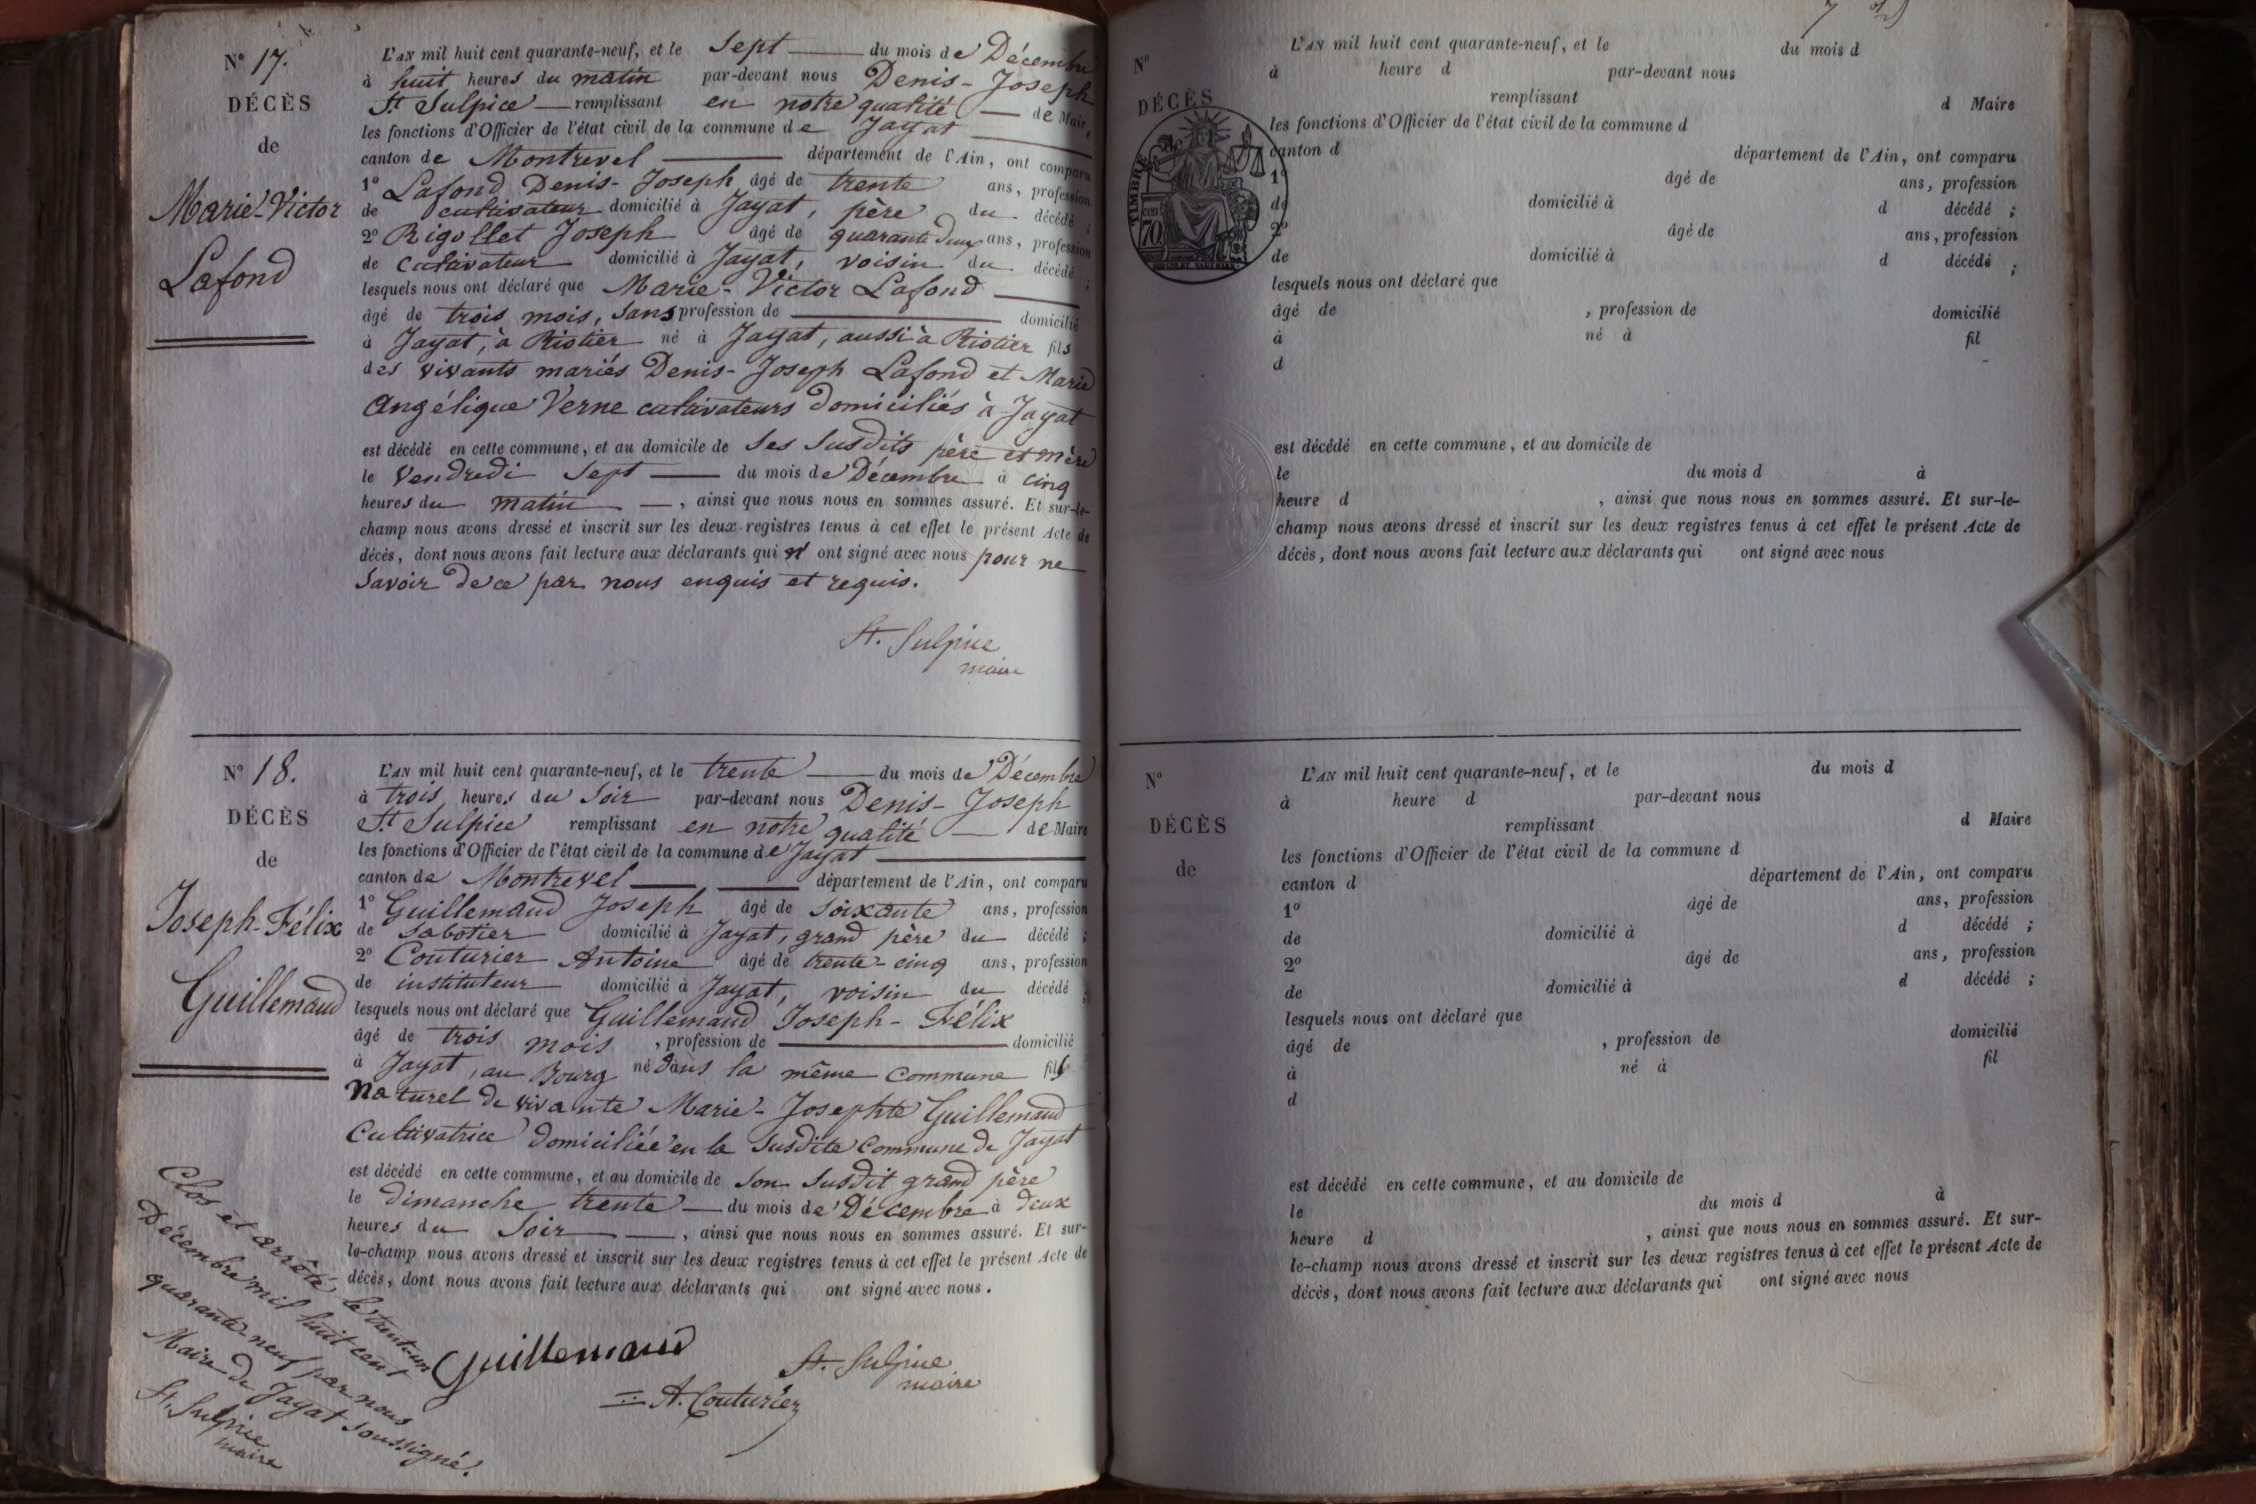 N° 17.
DÉCÈS
de
Marie-Victor
Lafond
L'AN mil huit cent quarante-neuf, et le sept du mois de Décembre
à huit heures du matin par-devant nous Denis-Joseph
St Sulpice remplissant en notre qualité de Maire,
les fonctions d'Officier de l'état civil de la commune de Jayat
canton de Montrevel département de l'Ain, ont comparu
1° Lafond Denis-Joseph âgé de trente ans, profession
de cultivateur domicilié à Jayat, père du décédé ;
2° Rigollet Joseph âgé de quarante deux ans, profession
de cultivateur domicilié à Jayat, voisin du décédé ;
lesquels nous ont déclaré que Marie-Victor Lafond
âgé de trois mois, sans profession de domicilié
à Jayat, à Riotier né à Jayat, aussi à Riotier fils
des vivants mariés Denis-Joseph Lafond et Marie
Angélique Verne cultivateurs domiciliés à Jayat
est décédé en cette commune, et au domicile de ses susdits père et mère
le vendredi sept du mois de Décembre à cinq
heures du matin , ainsi que nous nous en sommes assuré. Et sur-le-
champ nous avons dressé et inscrit sur les deux registres tenus à cet effet le présent Acte de
décès, dont nous avons fait lecture aux déclarants qui n' ont signé avec nous pour ne
savoir de ce par nous enquis et requis.
St. Sulpice
maire
N° 18.
DÉCÈS
de
Joseph-Félix
Guillemaud
L'AN mil huit cent quarante-neuf, et le trente du mois de Décembre
à trois heures du soir par-devant nous Denis-Joseph
St Sulpice remplissant en notre qualité de Maire
les fonctions d'Officier de l'état civil de la commune de Jayat
canton de Montrevel département de l'Ain, ont comparu
1° Guillemaud Joseph âgé de soixante ans, profession
de sabotier domicilié à Jayat, grand père du décédé ;
2° Couturier Antoine âgé de trente-cinq ans, profession
de instituteur domicilié à Jayat, voisin du décédé ;
lesquels nous ont déclaré que Guillemaud Joseph-Félix
âgé de trois mois , profession de domicilié
à Jayat, au Bourg né dans la même commune fils
naturel de vivante Marie-Josephte Guillemaud
Cultivatrice domiciliée en la susdite commune de Jayat
est décédé en cette commune, et au domicile de son susdit grand père
le dimanche trente du mois de Décembre à deux
heures du soir , ainsi que nous nous en sommes assuré. Et sur-
le-champ nous avons dressé et inscrit sur les deux registres tenus à cet effet le présent Acte de
décès, dont nous avons fait lecture aux déclarants qui ont signé avec nous.
Guillemaud
St. Sulpice
maire
A. Couturier
Clos et arrêté le trente-un
Décembre mil huit cent
quarante-neuf par nous
Maire de Jayat soussigné.
St. Sulpice
maire
N°
DÉCÈS
TIMBRE
70
L'AN mil huit cent quarante-neuf, et le du mois d
à heure d par-devant nous
remplissant d Maire
les fonctions d'Officier de l'état civil de la commune d
canton d département de l'Ain, ont comparu
1° âgé de ans, profession
de domicilié à d décédé ;
2° âgé de ans, profession
de domicilié à d décédé ;
lesquels nous ont déclaré que
âgé de , profession de domicilié
à né à fil
d
est décédé en cette commune, et au domicile de
le du mois d à
heure d , ainsi que nous nous en sommes assuré. Et sur-le-
champ nous avons dressé et inscrit sur les deux registres tenus à cet effet le présent Acte de
décès, dont nous avons fait lecture aux déclarants qui ont signé avec nous
N°
DÉCÈS
de
L'AN mil huit cent quarante-neuf, et le du mois d
à heure d par-devant nous
remplissant d Maire
les fonctions d'Officier de l'état civil de la commune d
canton d département de l'Ain, ont comparu
1° âgé de ans, profession
de domicilié à d décédé ;
2° âgé de ans, profession
de domicilié à d décédé ;
lesquels nous ont déclaré que
âgé de , profession de domicilié
à né à fil
d
est décédé en cette commune, et au domicile de
le du mois d à
heure d , ainsi que nous nous en sommes assuré. Et sur-
le-champ nous avons dressé et inscrit sur les deux registres tenus à cet effet le présent Acte de
décès, dont nous avons fait lecture aux déclarants qui ont signé avec nous